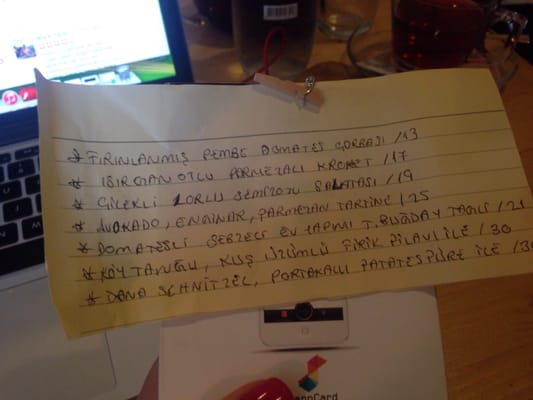 * FIRINLANMIŞ PEMBE DOMATES ÇORBASI /13
* ISIRGAN OTLU PARMEZANLI KROKET /17
* ÇİLEKLİ LORLU SEMİZOTU SALATASI /19
* AVOKADO, ENGİNAR, PARMEZAN TARTINE /25
* DOMATESLİ SEBZELİ EV YAPIMI T. BUĞDAY TAGLI /21
* KÖY TAVUĞU, KUŞ ÜZÜMLÜ FİRİK PİLAVI İLE /30
* DANA SCHNITZEL, PORTAKALLI PATATES PÜRE İLE /30